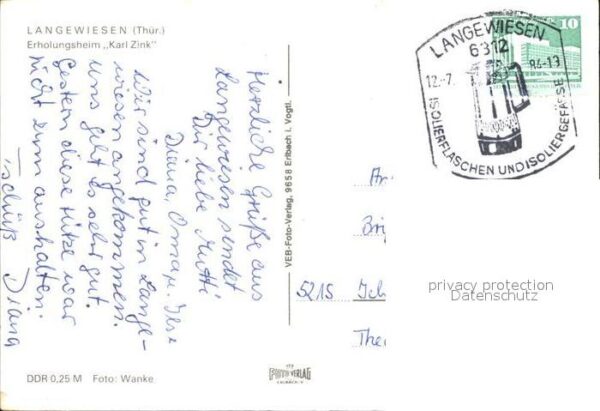 LANGEWIESEN (Thür.)
Erholungsheim „Karl Zink"
Herzliche Grüße aus
Langewiesen sendet
Dir liebe Mutti
Diana, Oma u.
Wir sind gut in Lange-
wiesen angekommen.
uns geht es sehr gut.
Gestern diese Hitze war
nicht zum aushalten.
Tschüß Diana
DDR 0,25 M Foto: Wanke
VEB-Foto-Verlag, 9658 Erlbach i. Vogtl.
FOTO-VERLAG
ERLBACH
10
LANGEWIESEN
6312
12.-7. 84-19
ISOLIERFLASCHEN UND ISOLIERGEFÄSSE
5215
privacy protection
Datenschutz